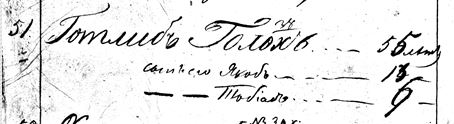 51. Готлибъ Голохъ ... 55 летъ
сынъ его Якобъ — 18
— — Тобіасъ — 6